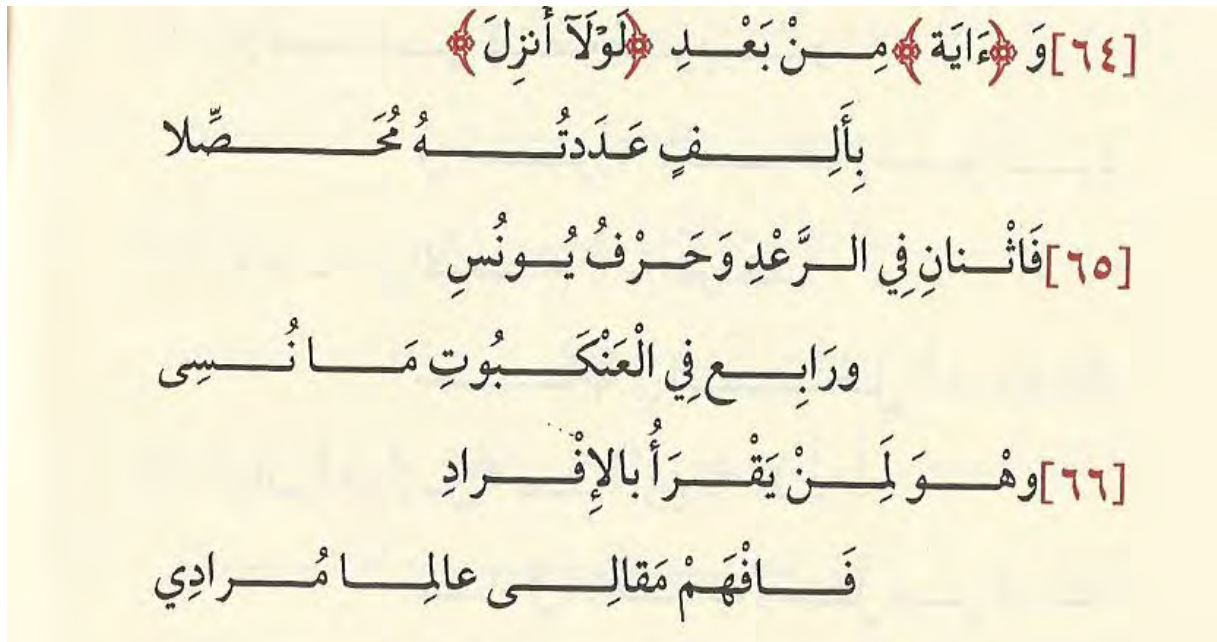 [٦٤] وَ ﴿ءَايَة﴾ مِنْ بَعْدِ ﴿لَوْلَآ أُنزِلَ﴾
بِأَلِفٍ عَدَدتُهُ مُحَصِّلا
[٦٥] فَاثْنانِ فِي الرَّعْدِ وَحَرْفُ يُونُسِ
ورَابِع فِي الْعَنْكَبُوتِ مَا نُسِى
[٦٦] وهْوَ لَمِنْ يَقْرَأُ بالإِفْرادِ
فَافْهَمْ مَقالِى عالِما مُرادِي